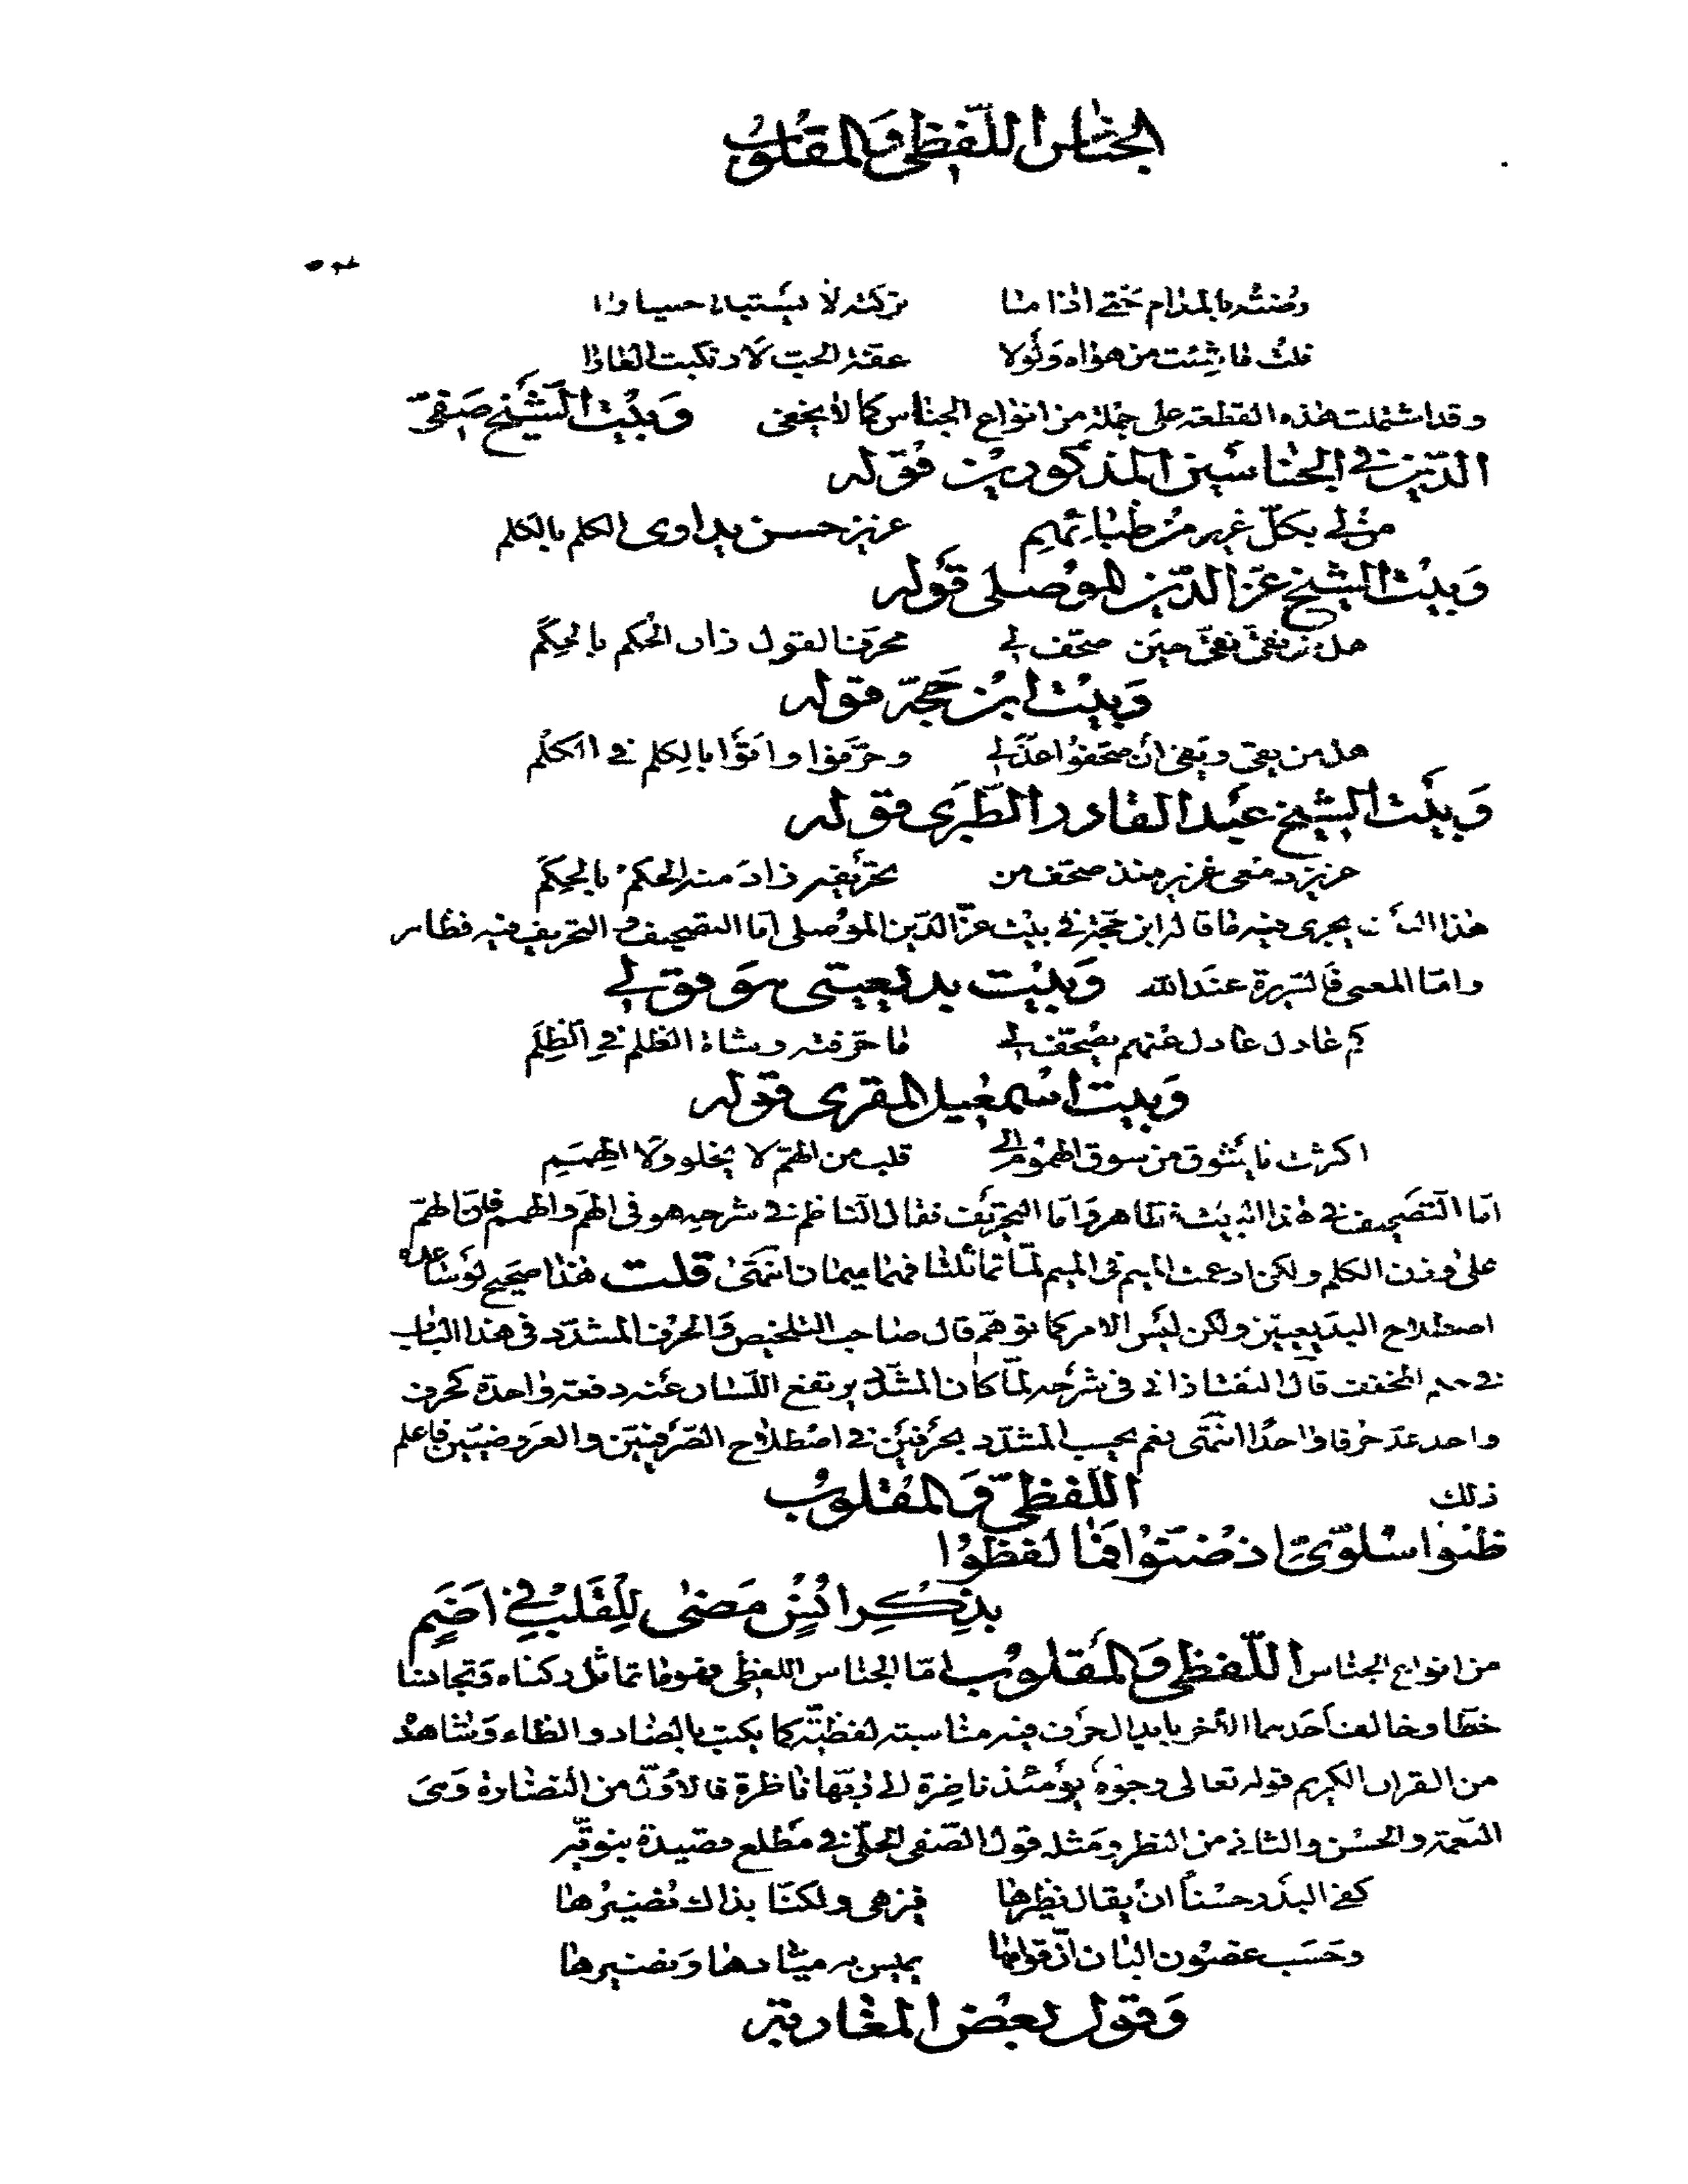 الجناس اللفظي والمقلوب
بالمدام حتى اذا ما تركته لا
قلت ما شئت من هواه ولولا عقة الحب لارتكبت
وقد اشتملت هذه القطعة على جملة من انواع الجناس كما لا يخفى وبيت الشيخ صفيّ
الدّين في الجناسين المذكورين قوله
من لي بكلّ غرير من ظبائهم عزيز حسن يداوى الكلم بالكلم
وبيت الشيخ عز الدّين الموصلى قوله
هل من حين صحّف لي محرّفا لقول زان الحُكم بالحِكَم
وبيت ابن حجّة قوله
هل من يقى ويفى ان صحّفوا عذلي وحرّفوا واتوا بالكلم في الكلم
وبيت الشيخ عبد القادر الطّبرى قوله
منذ صحّف من تحريفه زادَ منه الحكم بالحِكَم
هذا البيت يجرى فيه ما قاله ابن حجّة في بيت عزّ الدّين الموصلى امّا التصحيف و التحريف فيه فظاهر
وامّا المعنى عند الله وبيت بديعيتى هو قولي
كم عاذل عادل عنهم يصحّف لي ما حرّفته وشاة الظلم في الظلم
وبيت اسمعيل المقرى قوله
اكثرت ما يشوق من سوق الهموم الى قلب من الهمّ لا يخلو ولا الهمم
امّا التصحيف في هذا البيت فظاهر وامّا التحريف فقال النّاظم في شرحه هو في الهمّ والهمم فانّ الهمّ
على وزن الكلم ولكن ادغمت الميم في الميم لمّا تماثلتا فهما ميمان انتهى قلت هذا صحيح لو ساعده
اصطلاح البديعيين ولكن ليس الامر كما توهّم قال صاحب التلخيص والحرف المشدّد في هذا الباب
في حكم المخفف قال التفتازاني في شرحه لمّا كان المشدّد يرتفع اللّسان عنه دفعة واحدة كحرف
واحد عدّ حرفا واحدًا انتهى نعم يحسب المشدّد بحرفين في اصطلاح الصّرفيين والعروضيين فاعلم
ذلك اللّفظيّ والمقلوب
ظنوا سلوّي اذ ضنّوا فما لفظوا
بذكر انس مضى للقلب في اضم
من انواع الجناس اللّفظي والمقلوب امّا الجناس اللفظي فهو ما تماثل ركناه وتجانسا
خطّا وخالف احدهما الآخر بابدال حرف فيه مناسبته لفظيّة كما يكتب بالضاد والظاء وشاهده
من القران الكريم قوله تعالى وجوه يومئذ ناضرة الى ربّها ناظرة فالاوّل من النضارة وهى
النّعمة والحسن والثاني من النظر ومثله قول الصّفى الحلّى في مطلع قصيدة نبويّة
كفى البدر حسناً ان يقال نظيرها فيزهى ولكنّا بذاك نضيرها
وحسب غصون البان انّ قوامها يقاس به ميّادها ونضيرها
وقول بعض المغاربة